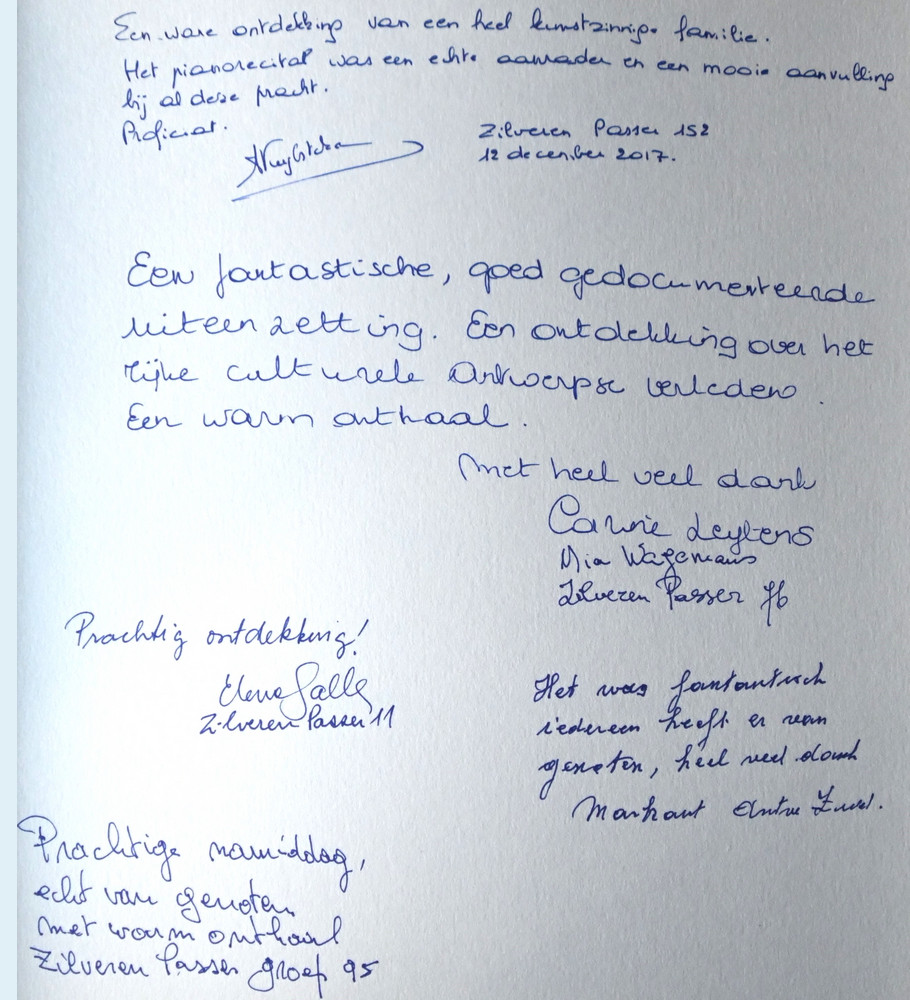 Een ware ontdekking van een heel kunstzinnige familie.
Het pianorecital was een echte aanrader en een mooie aanvulling
bij al deze pracht.
Proficiat.
Zilveren Passer 152
12 december 2017.
Een fantastische, goed gedocumenteerde
uiteenzetting. Een ontdekking over het
rijke culturele Antwerpse verleden.
Een warm onthaal.
Met heel veel dank
Carine Leytens
Mia Wagemans
Zilveren Passer 76
Prachtig ontdekking!
Elena Galle
Zilveren Passer 11
Het was fantantisch
iedereen heeft er van
genoten, heel veel dank
Markant
Prachtige namiddag,
echt van genoten.
Met warm onthaal
Zilveren Passer groep 95